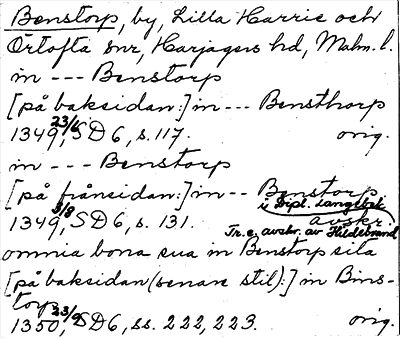 Benstorp, by, Lilla Harrie och
Örtofta snr, Harjagers hd, Malm. l.
in --- Benstorp
[på baksidan:] in --- Bensthorp
1349 23/6, SD 6, s. 117. orig.
in --- Benstorp
[på frånsidan:] in --- Benstorp
i Dipl. Langebek
1349 3/8, SD 6, s. 131. avskr.
Tr. e. avskr. av Hildebrand
omnia bona sua in Benstorp sita
[på baksidan (senare stil):] in Bins-
torp
1350 23/9, SD 6, ss. 222, 223. orig.